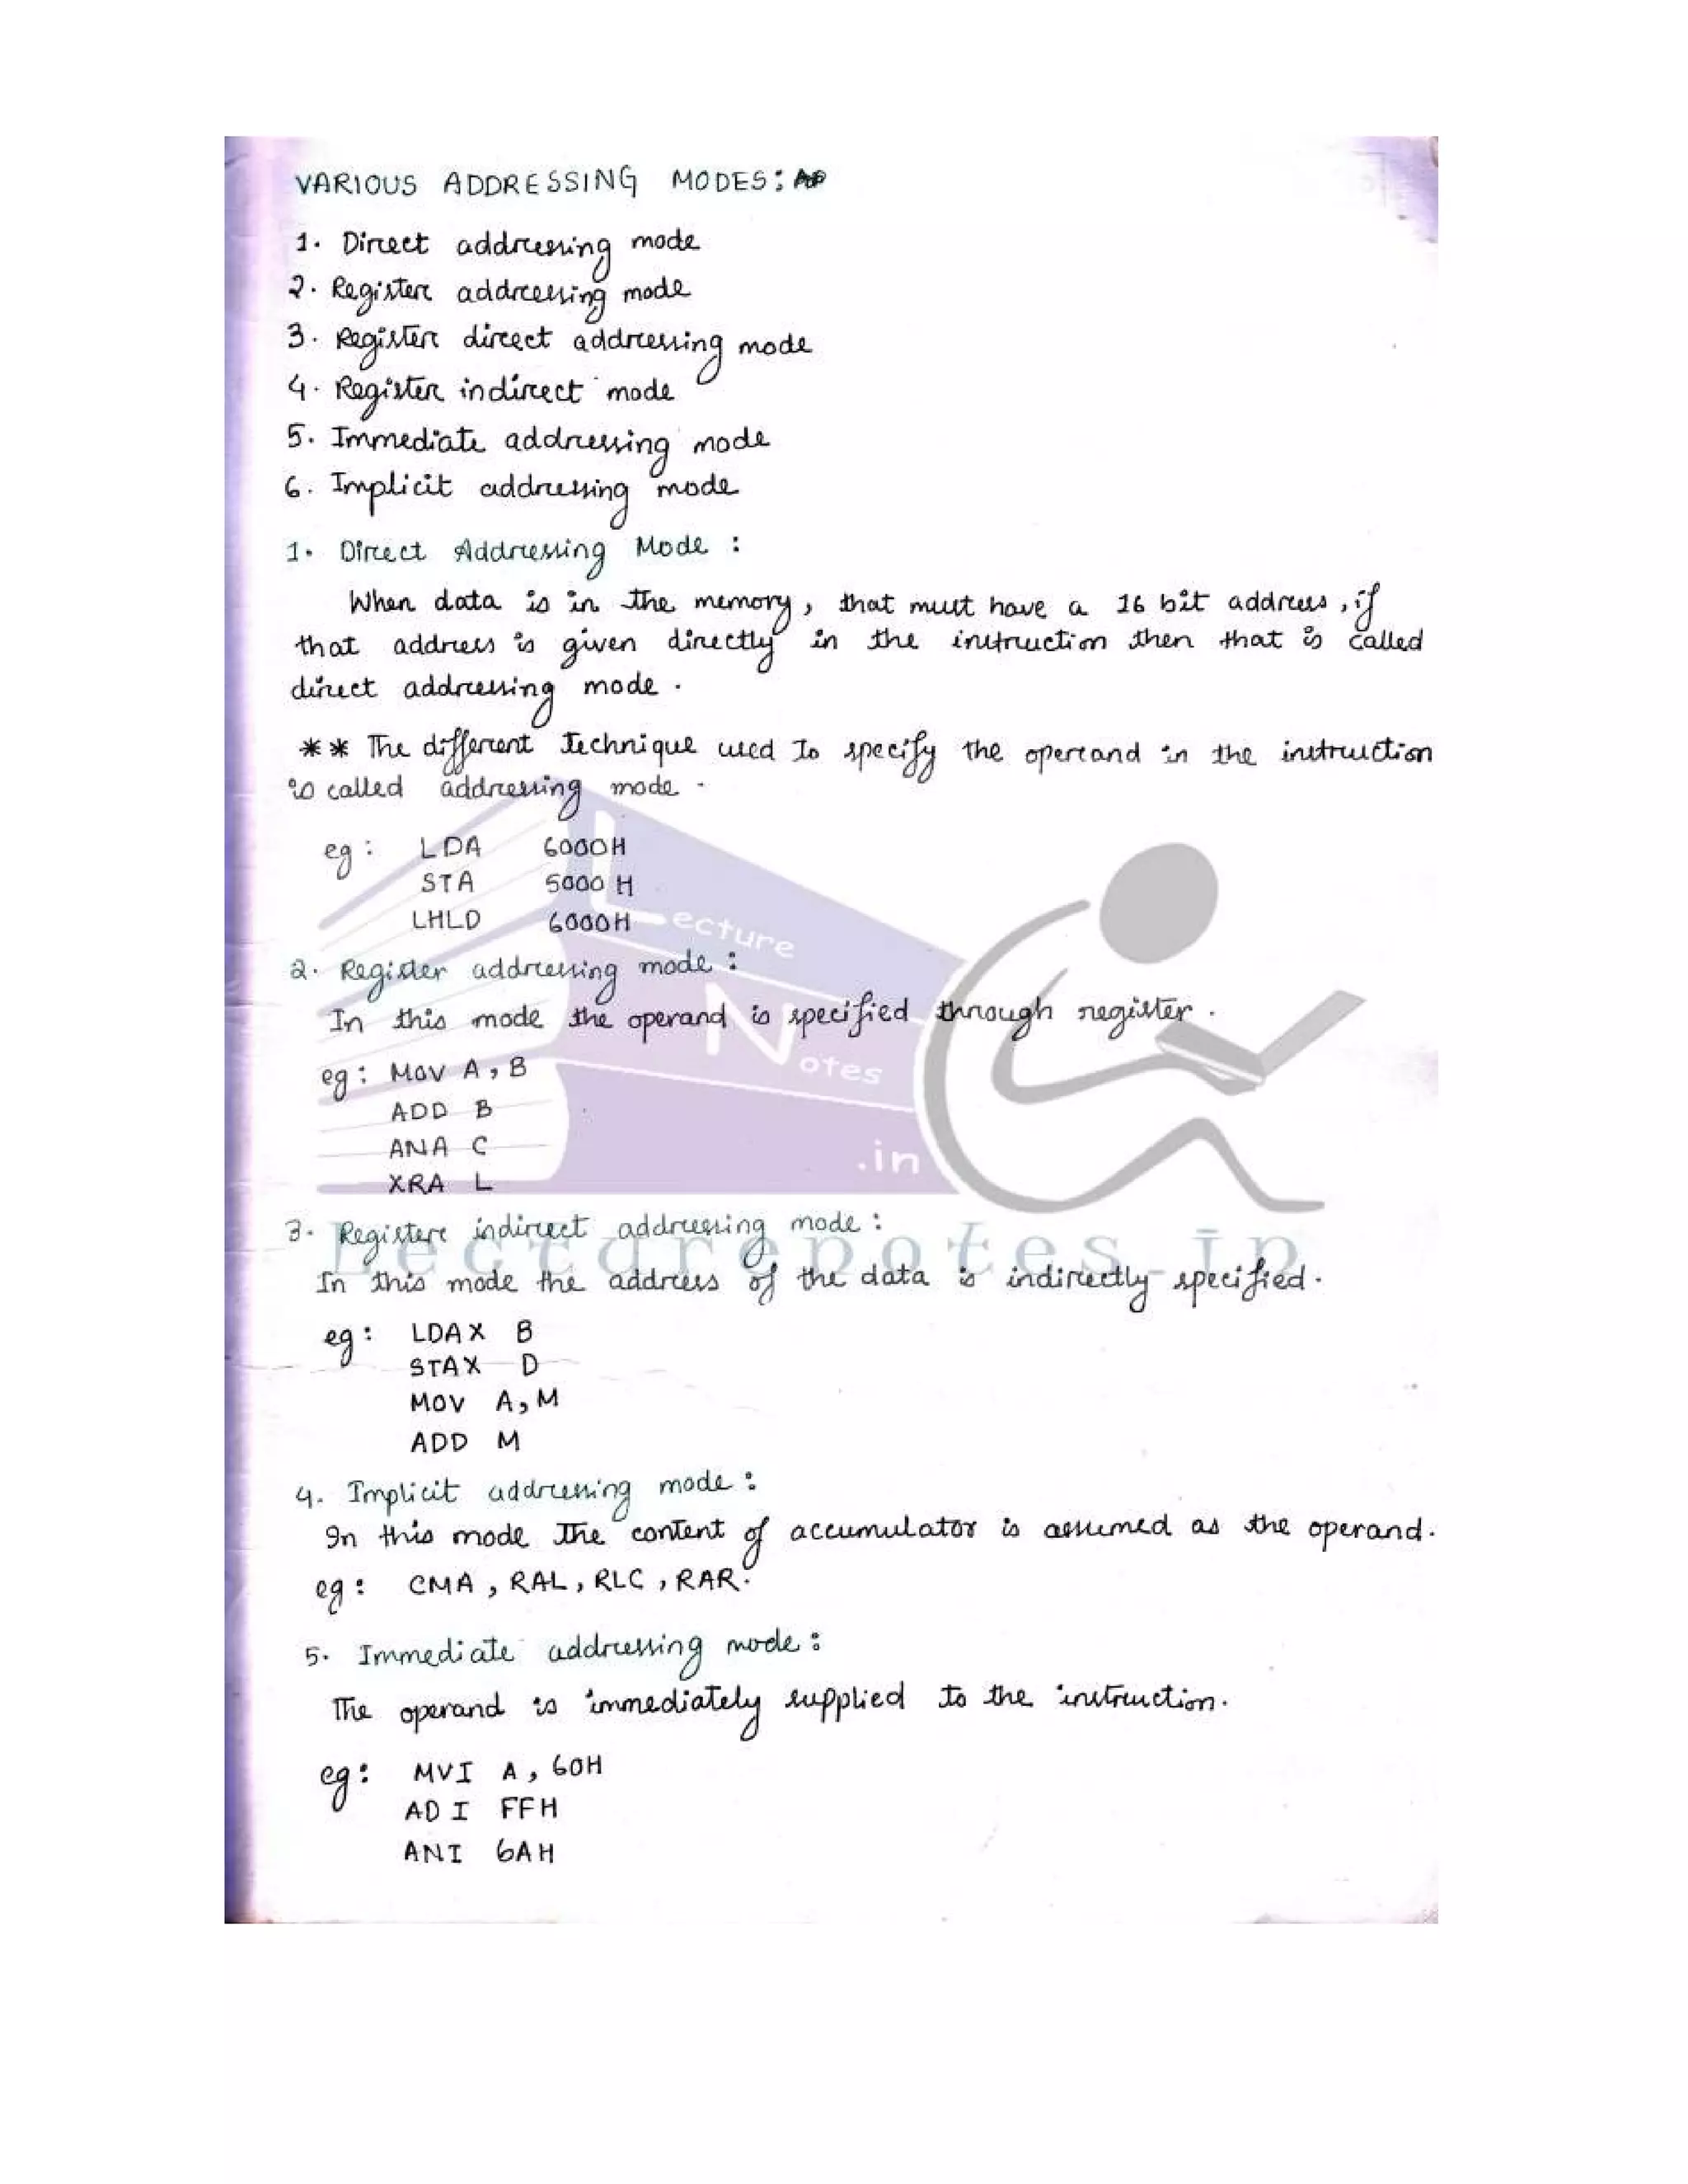 VARIOUS ADDRESSING MODES:
1. Direct addressing mode
2. Register addressing mode
3. Register direct addressing mode
4. Register indirect mode
5. Immediate addressing mode
6. Implicit addressing mode
1. Direct Addressing Mode :
When data is in the memory, that must have a 16 bit address, if
that address is given directly in the instruction then that is called
direct addressing mode.
** The different technique used to specify the operand in the instruction
is called addressing mode.
eg : LDA 6000H
STA 5000 H
LHLD 6000H
2. Register addressing mode :
In this mode the operand is specified through register.
eg : MOV A, B
ADD B
ANA C
XRA L
3. Register indirect addressing mode :
In this mode the address of the data is indirectly specified.
eg : LDAX B
STAX D
MOV A, M
ADD M
4. Implicit addressing mode :
In this mode the content of accumulator is assumed as the operand.
eg : CMA, RAL, RLC, RAR.
5. Immediate addressing mode :
The operand is immediately supplied to the instruction.
eg : MVI A, 60H
ADI FFH
ANI 6AH
Lecture
Notes
.in
Lecturenotes.in